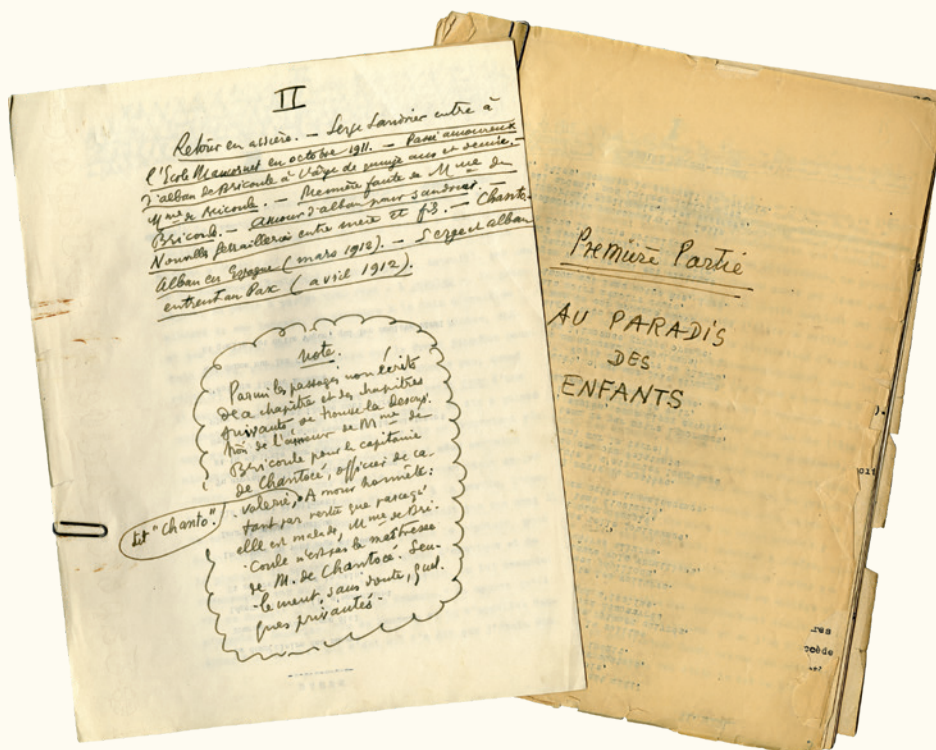 II
Retour en arrière. — Serge Sandrier entre à
l'École Maucornet en octobre 1911. — Passé amoureux
d'Alban de Bricoule à l'âge de quinze ans et demie. —
Mme de Bricoule. — Première faute de Mme de
Bricoule. — Amour d'Alban pour Sandrier. —
Nouvelles ferrailleries entre mère et fils. — Chanto. —
Alban en Espagne (mars 1912). — Serge et Alban
entrent au Pax (avril 1912).
Note.
Parmi les passages non écrits
de ce chapitre et des chapitres
suivants, se trouve la descrip-
tion de l'amour de Mme de
Bricoule pour le capitaine
de Chantocé, officier de ca-
valerie, dit "Chanto". Amour honnête:
tant par vertu que parce qu'
elle est malade, Mme de Bri-
coule n'est pas la maîtresse
de M. de Chantocé. Seu-
lement, sans doute, quel-
ques privautés.
Première Partie
AU PARADIS
DES
ENFANTS